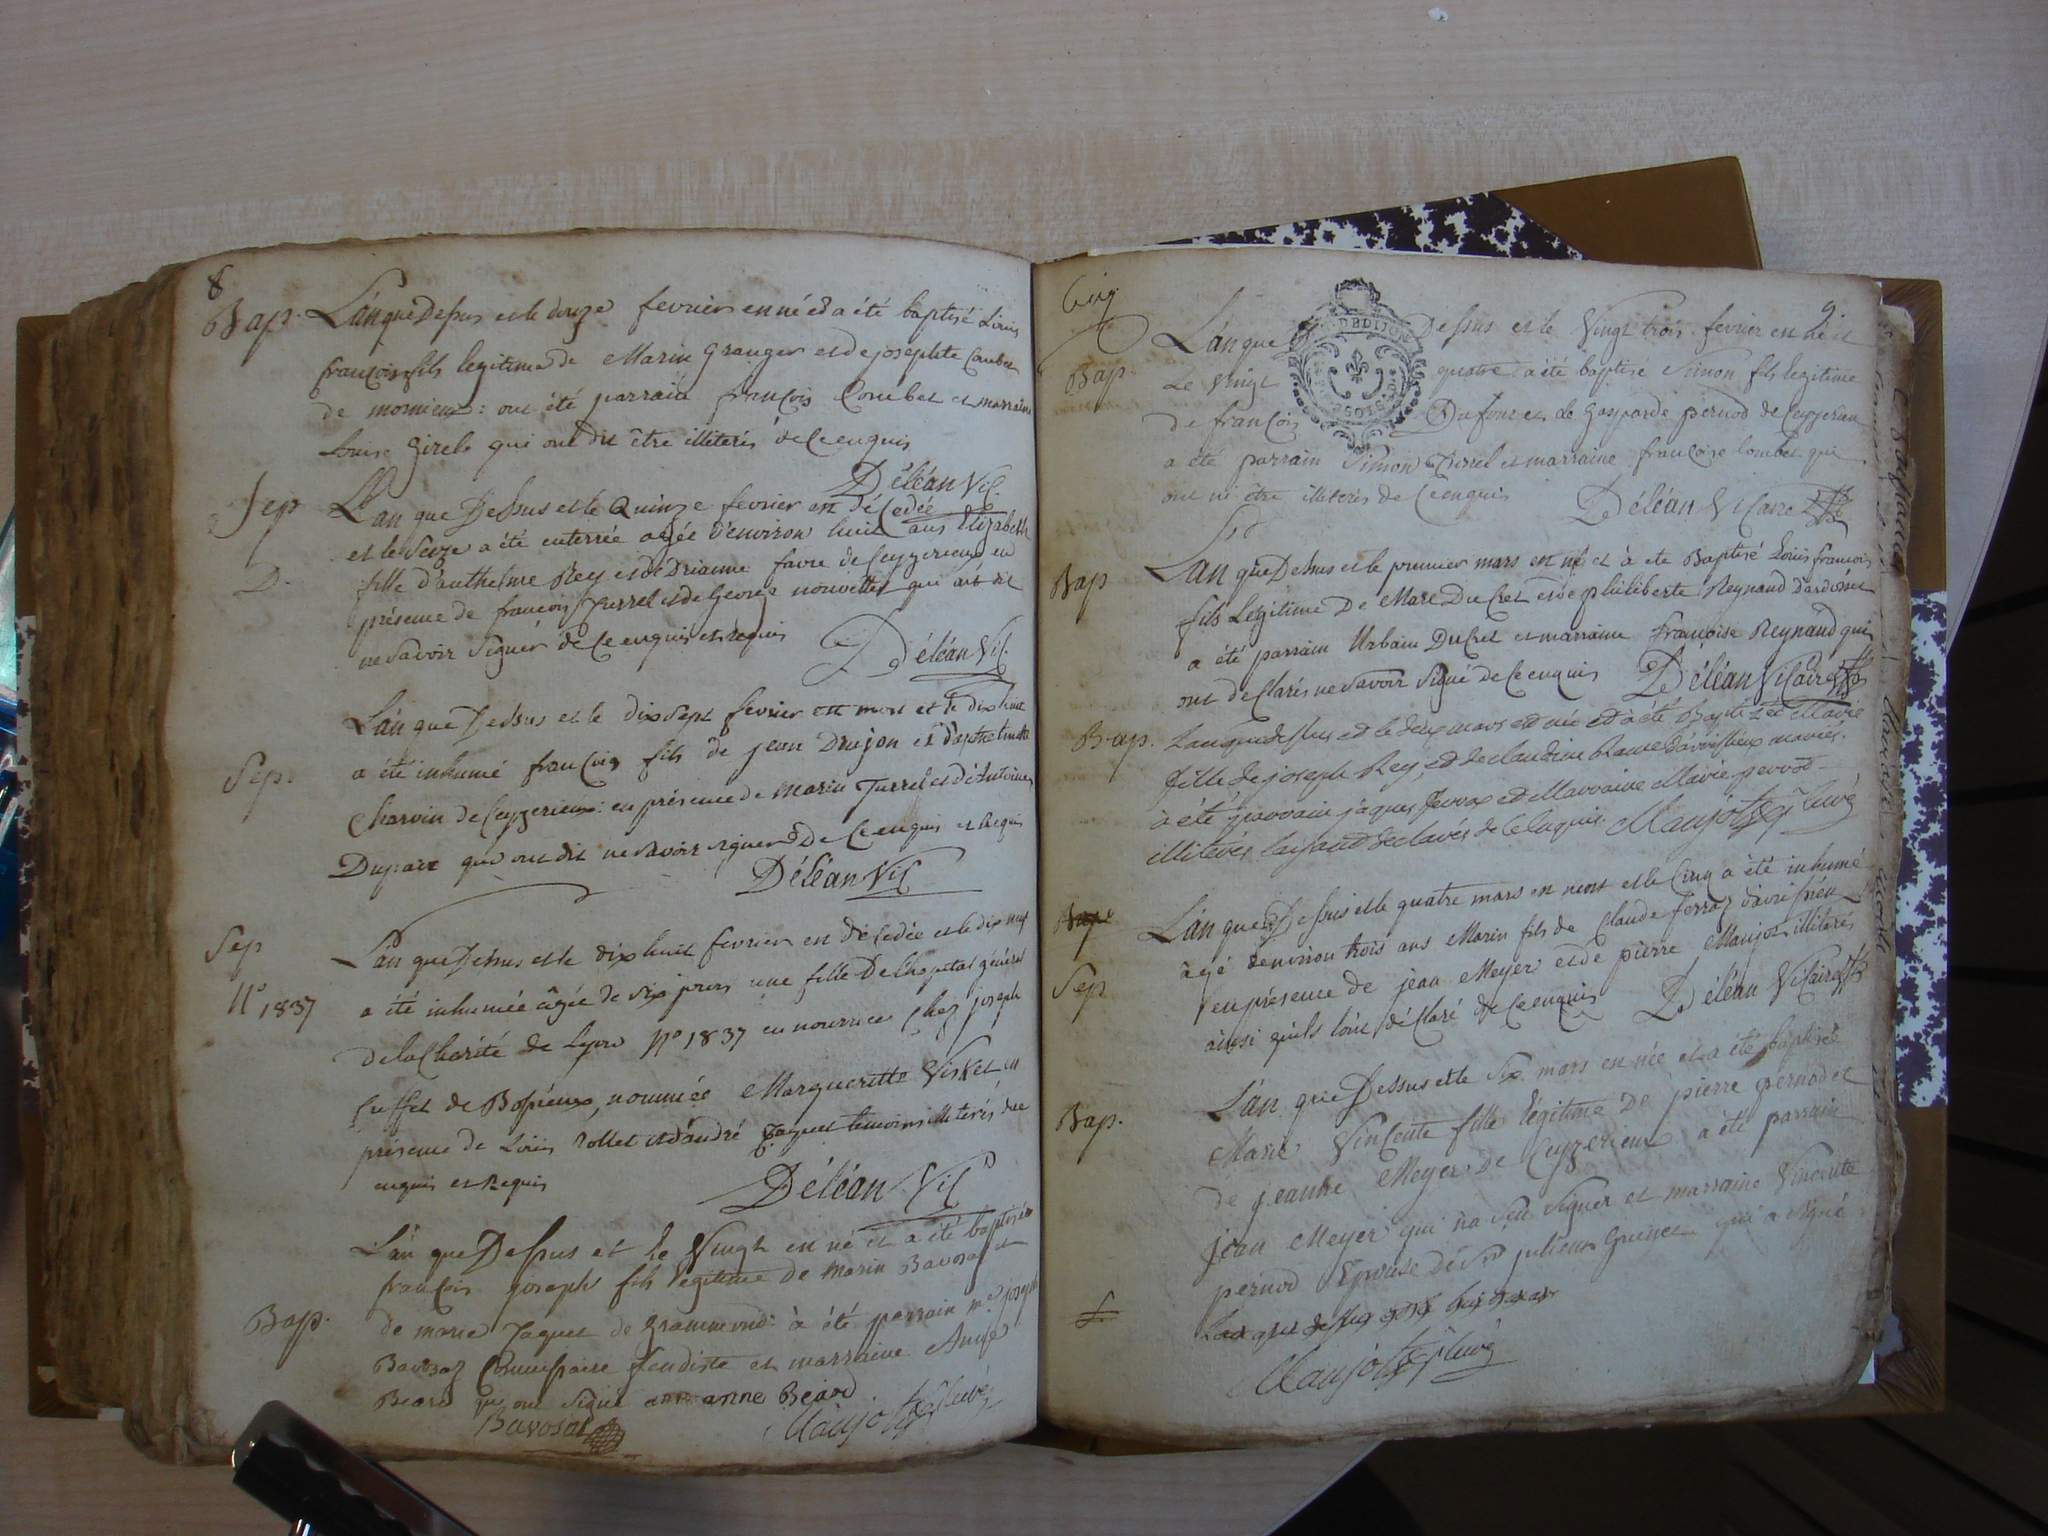 8
Bap. L'an que Dessus et le douze fevrier en né et a été baptisé Loüis
françois fils legitime de Marin Granger et de josephte Combet
de mornieux: ont été parrain françois Combet et marraine
Louise Girel qui ont dit être illiterés de Ce enquis
Déléan Vic.
Sep L'an que Dessus et le Quinze fevrier est décedée
et le Seize a été enterrée agée d'environ huit ans Elizabeth
D. fille d'anthelme Rey et de Drianne favre de Ceyzerieux en
présence de francois Turrel et de George nouvellet qui ont dit
ne Savoir Signer de Ce enquis et requis
Déléan Vic.
L'an que Dessus et le dix Sept fevrier est mort et le dix huit
Sep. a été inhumé françois fils de jean Drujon et d'
Charvin de Ceyzerieux: en présence de Marin Turrel et d'Antoine
Duparc qui ont dit ne Savoir signer de Ce enquis et Requis
Déléan Vic
Sep L'an que Dessus et le dix huit fevrier en décedée et le dix neuf
N° 1837 a été inhumée âgée de six jours une fille De l'hopital général
de la Charité de Lyon N° 1837 en nourrice Chez joseph
Cuffet de Bossieux, nommée Margueritte Visket en
présence de Loüis Rollet et d'andré Jaquet temoins illiterés due
enquis et Requis
Déléan Vic
L'an que Dessus et le Vingt en né et a été baptisé
françois joseph fils legitime de Marin Bavozat et
Bap. de marie Jaquet de Grammond: à été parrain me joseph
Bavozat Commissaire feudiste et marraine Anne
Béard qui ont Signé anne Béard
Bavosat Maujot
Cinq
9.
L'an que Dessus et le Vingt trois fevrier en né et
Bap Le Vingt quatre a été baptisé Simon fils legitime
de françois Dufour et de Gasparde pernod de Ceyzerieu
a été parrain Simon Turrel et marraine françoise Combet qui
ont dit être illiterés de Ce enquis Déléan Vicaire
Bap L'an que Dessus et le premier mars est né et à ete Baptisé Loüis françois
fils Legitime De Marc Ducret et de philiberte Reynaud d'ardosset
a été parrain Urbain Ducret et marraine françoise Reynaud qui
ont declaré ne Savoir Signé de Ce enquis Déléan Vicaire
Bap. L'an que dessus et le deux mars est née et à été Baptisée Marie
fille de joseph Rey, et de claudine Rame d'avrissieux mariés.
à été parrain jaques ferroz et Marraine Marie pernod
illiterés l'ayant declarés de Ce enquis. Maujot
Bap L'an que Dessus et le quatre mars en mort et le Cinq a été inhumé
âgé d'environ trois ans Marin fils de Claude ferroz d'avrissieu
Sep en présence de jean Meyer et de pierre Maujot illiterés
ainsi qu'ils l'ont déClaré de Ce enquis Déléan Vicaire
L'an que Dessus et le Six mars en née et a été baptisée
Bap. Marie Vincente fille légitime De pierre pernod et
de jeanne Meyer de Ceyzerieux: a été parrain
jean Meyer qui n'a Sçu Signer et marraine Vincente
pernod Epouse de Sr julien Guinet qui a Signé
L'an que dessus et le huit mars
Maujot